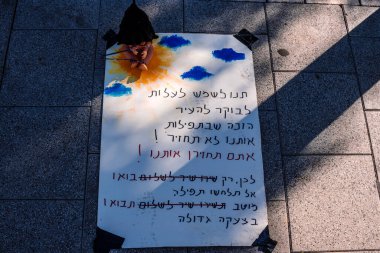 תנו לשמש לעלות
לבוקר להעיר
הזכה שבתפילות
אותנו לא תחזיר!
אתם תחזירו אותנו!
לכן, רק שירו שיר לשלום בואו
אל תלחשו תפילה
מוטב תשירו שיר לשלום תבואו
בצעקה גדולה